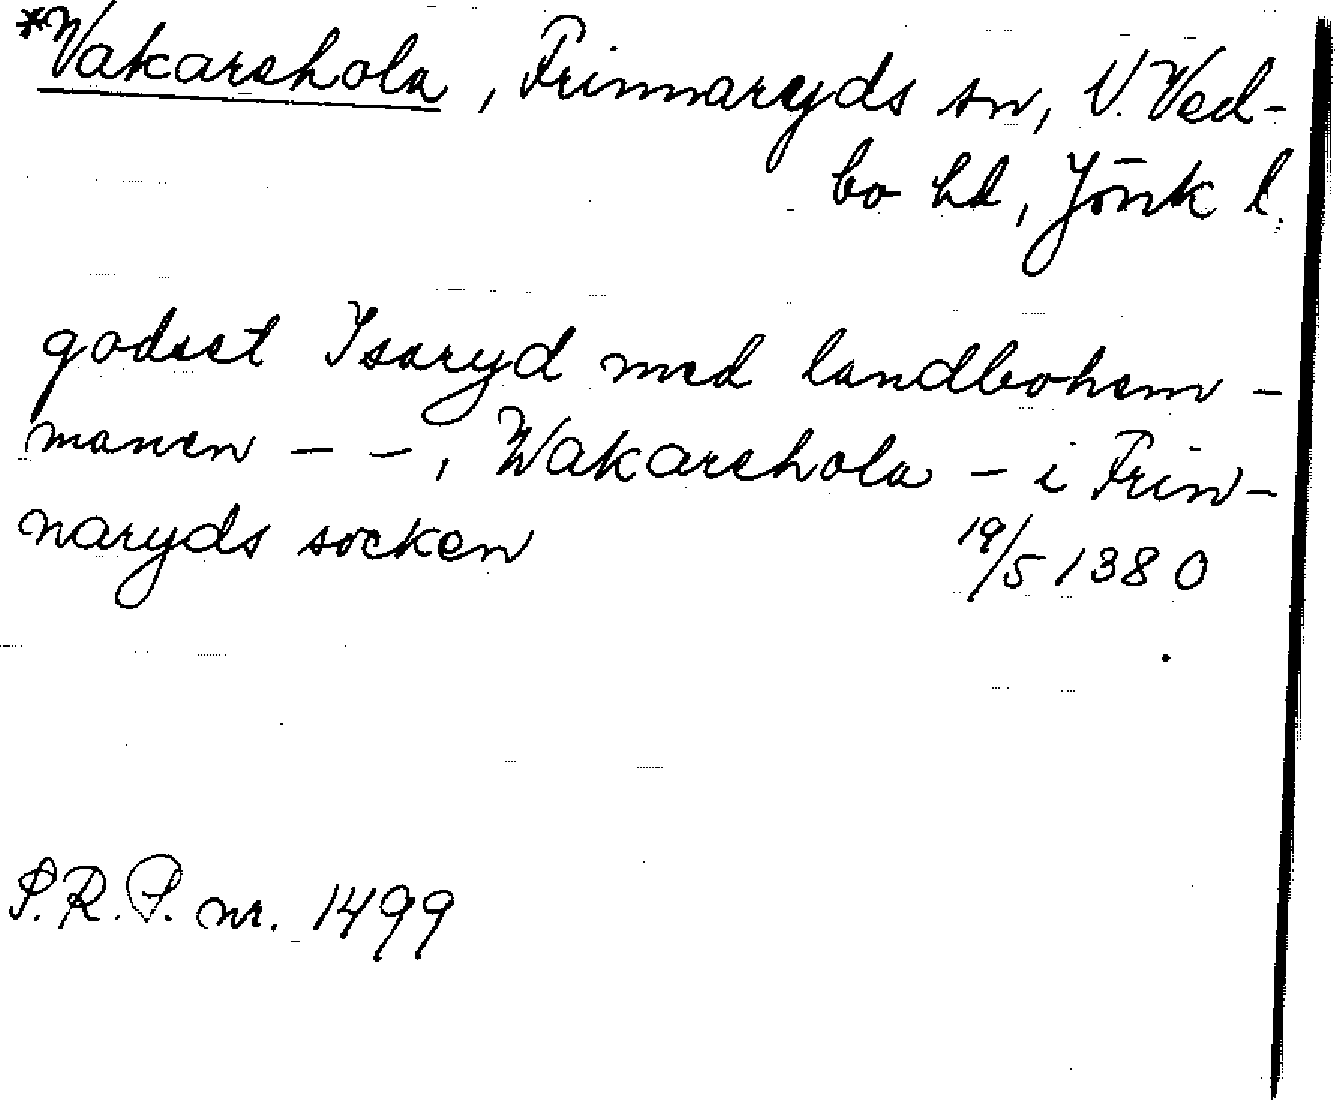 *Vakarehola, Frinnaryds sn, V. Ved-
bo hd, Jönk l.
godset Isaryd med landbohem-
manen - - , Wakarehola - i Frin-
naryds socken 19/5 1380
S.R.P. nr. 1499